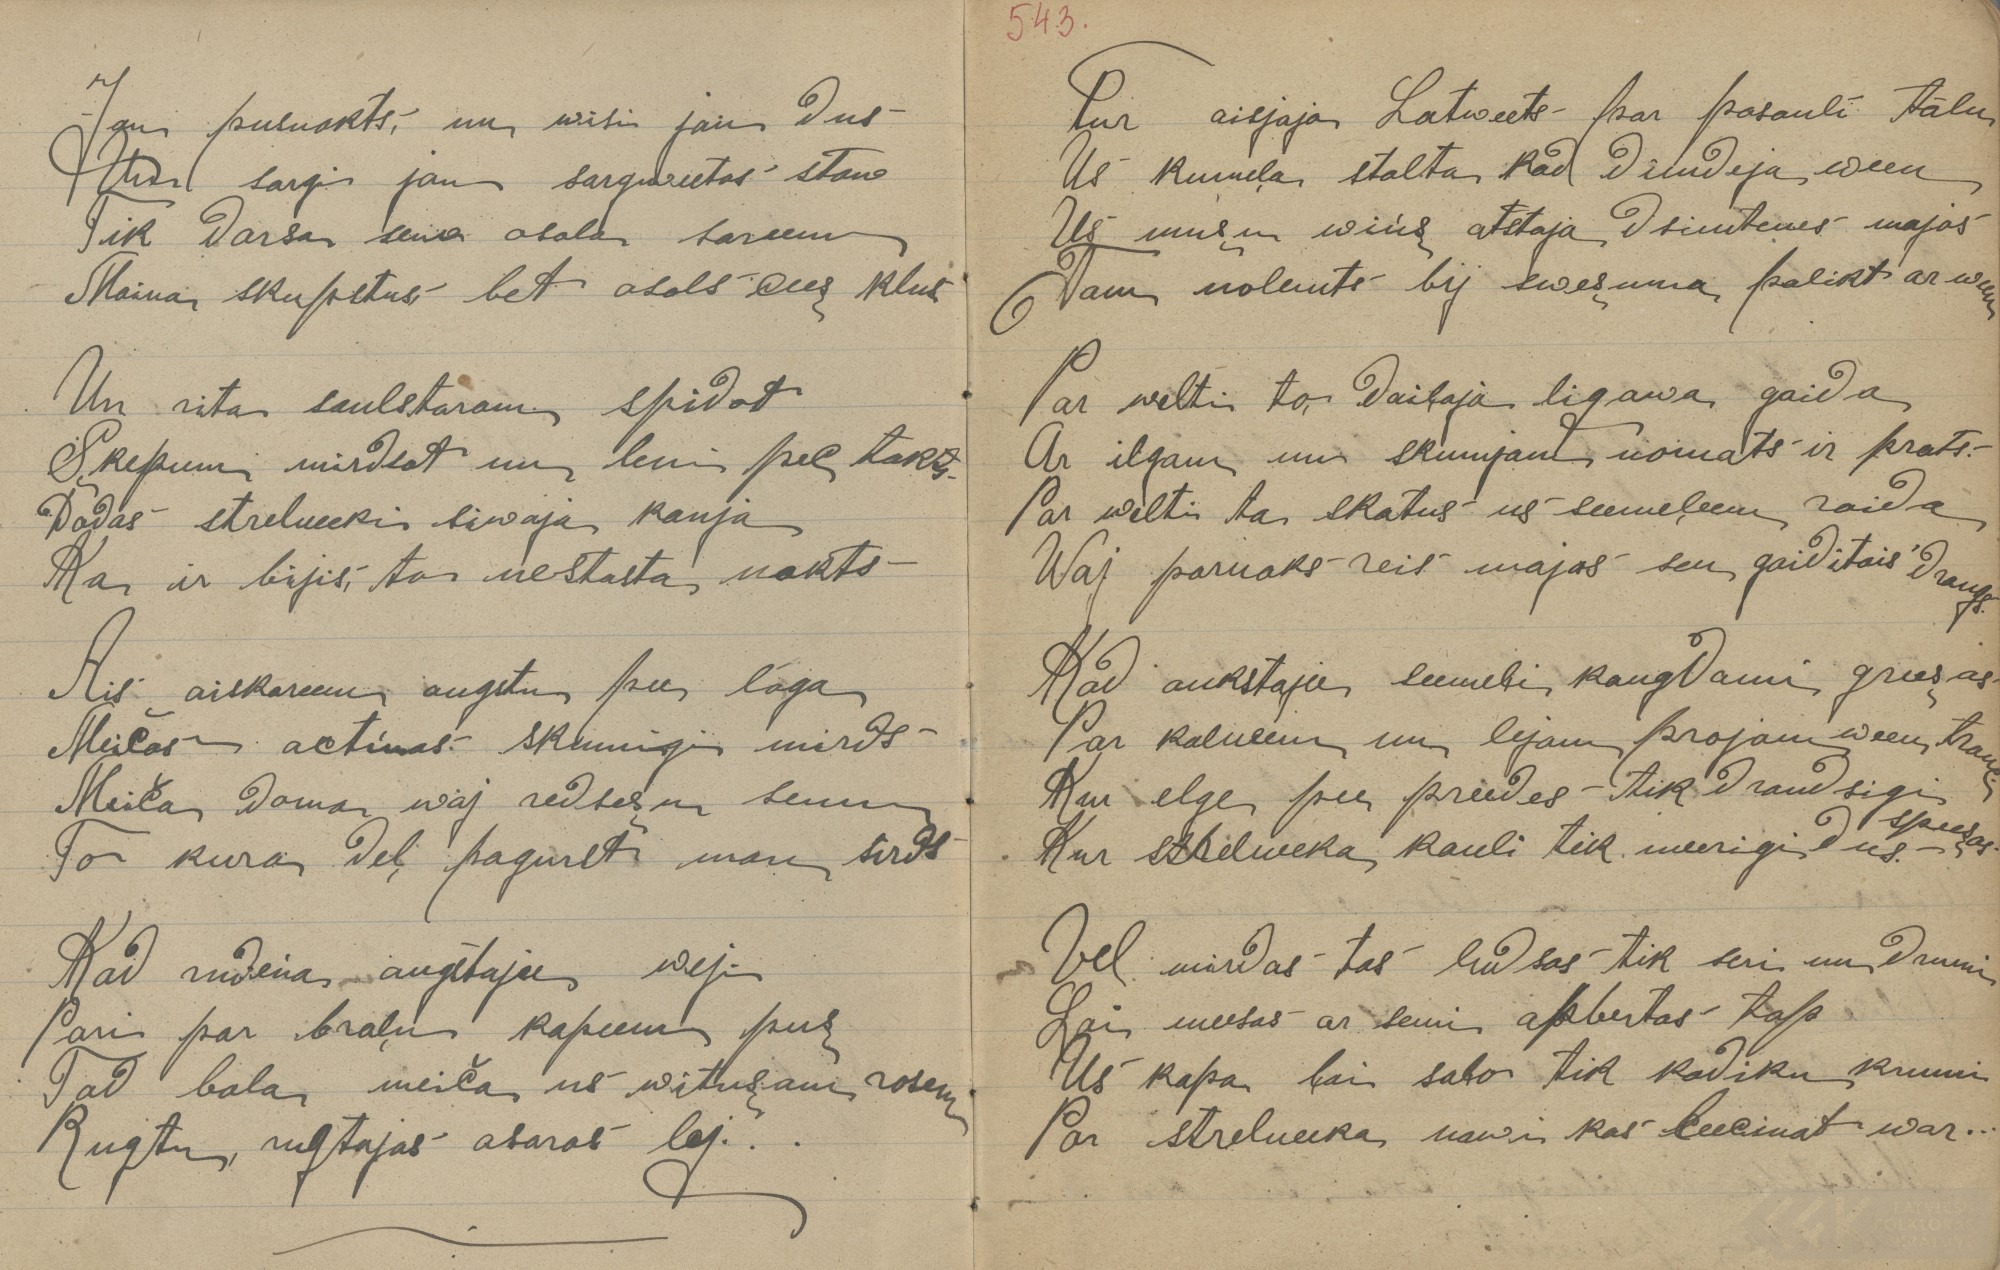 Jau pusnakts, un wisi jau dus
Tik sargi jau sargweetas staw
Tik darsa sena osola sareem
Maina skupstus, bet osols cees klus

Un rita saulstaram spidot
Šķepumi mirdsot un leni pec takts
Dodas strelneeki siwaja kauja
Ka ir bijis, to nestasta nakts

Ais aiskareem augstu pee loga
Meičas actinas skumigi mirds
Meiča doma waj redsešu senu
To kura deļ pagurst man sirds

Kad rudeņa augstajee weji
Pari par braļu kapeem puš
Tad bala meiča us witušam rosem
Rugtu, rugtajas asaras lej. . .

543.
Tur aisjaja Latweets par pasauli tālu
Us kumeļa stalta kad dimdeja ween
Us mušu wiņš atstaja dsimtenes majas
Tam nolemts bij swešuma palikt ar ween

Par welti to, dailaja ligawa gaida
Ar ilgam un skumjam nomats ir prats.
Par welti ta skatus us seemeļeem raida
Waj parnaks reis majas sen gaiditais draugs.

Kad aukstajee seemeli kaugdami greešas
Par kalneem un lejam projam ween trauc
Kur elge pee preedes tik draudsigi speešas
Kur strelneeka kauli tik meerigi dus.

Vel mirdas tas ludsas tik seri un drumi
Lai meesas ar semi apbertas tap
Us kapa lai salo tik kadiku krumi
Par strelneeka nawi kas leecinat war...

LATVIEŠU
FOLKLORAS